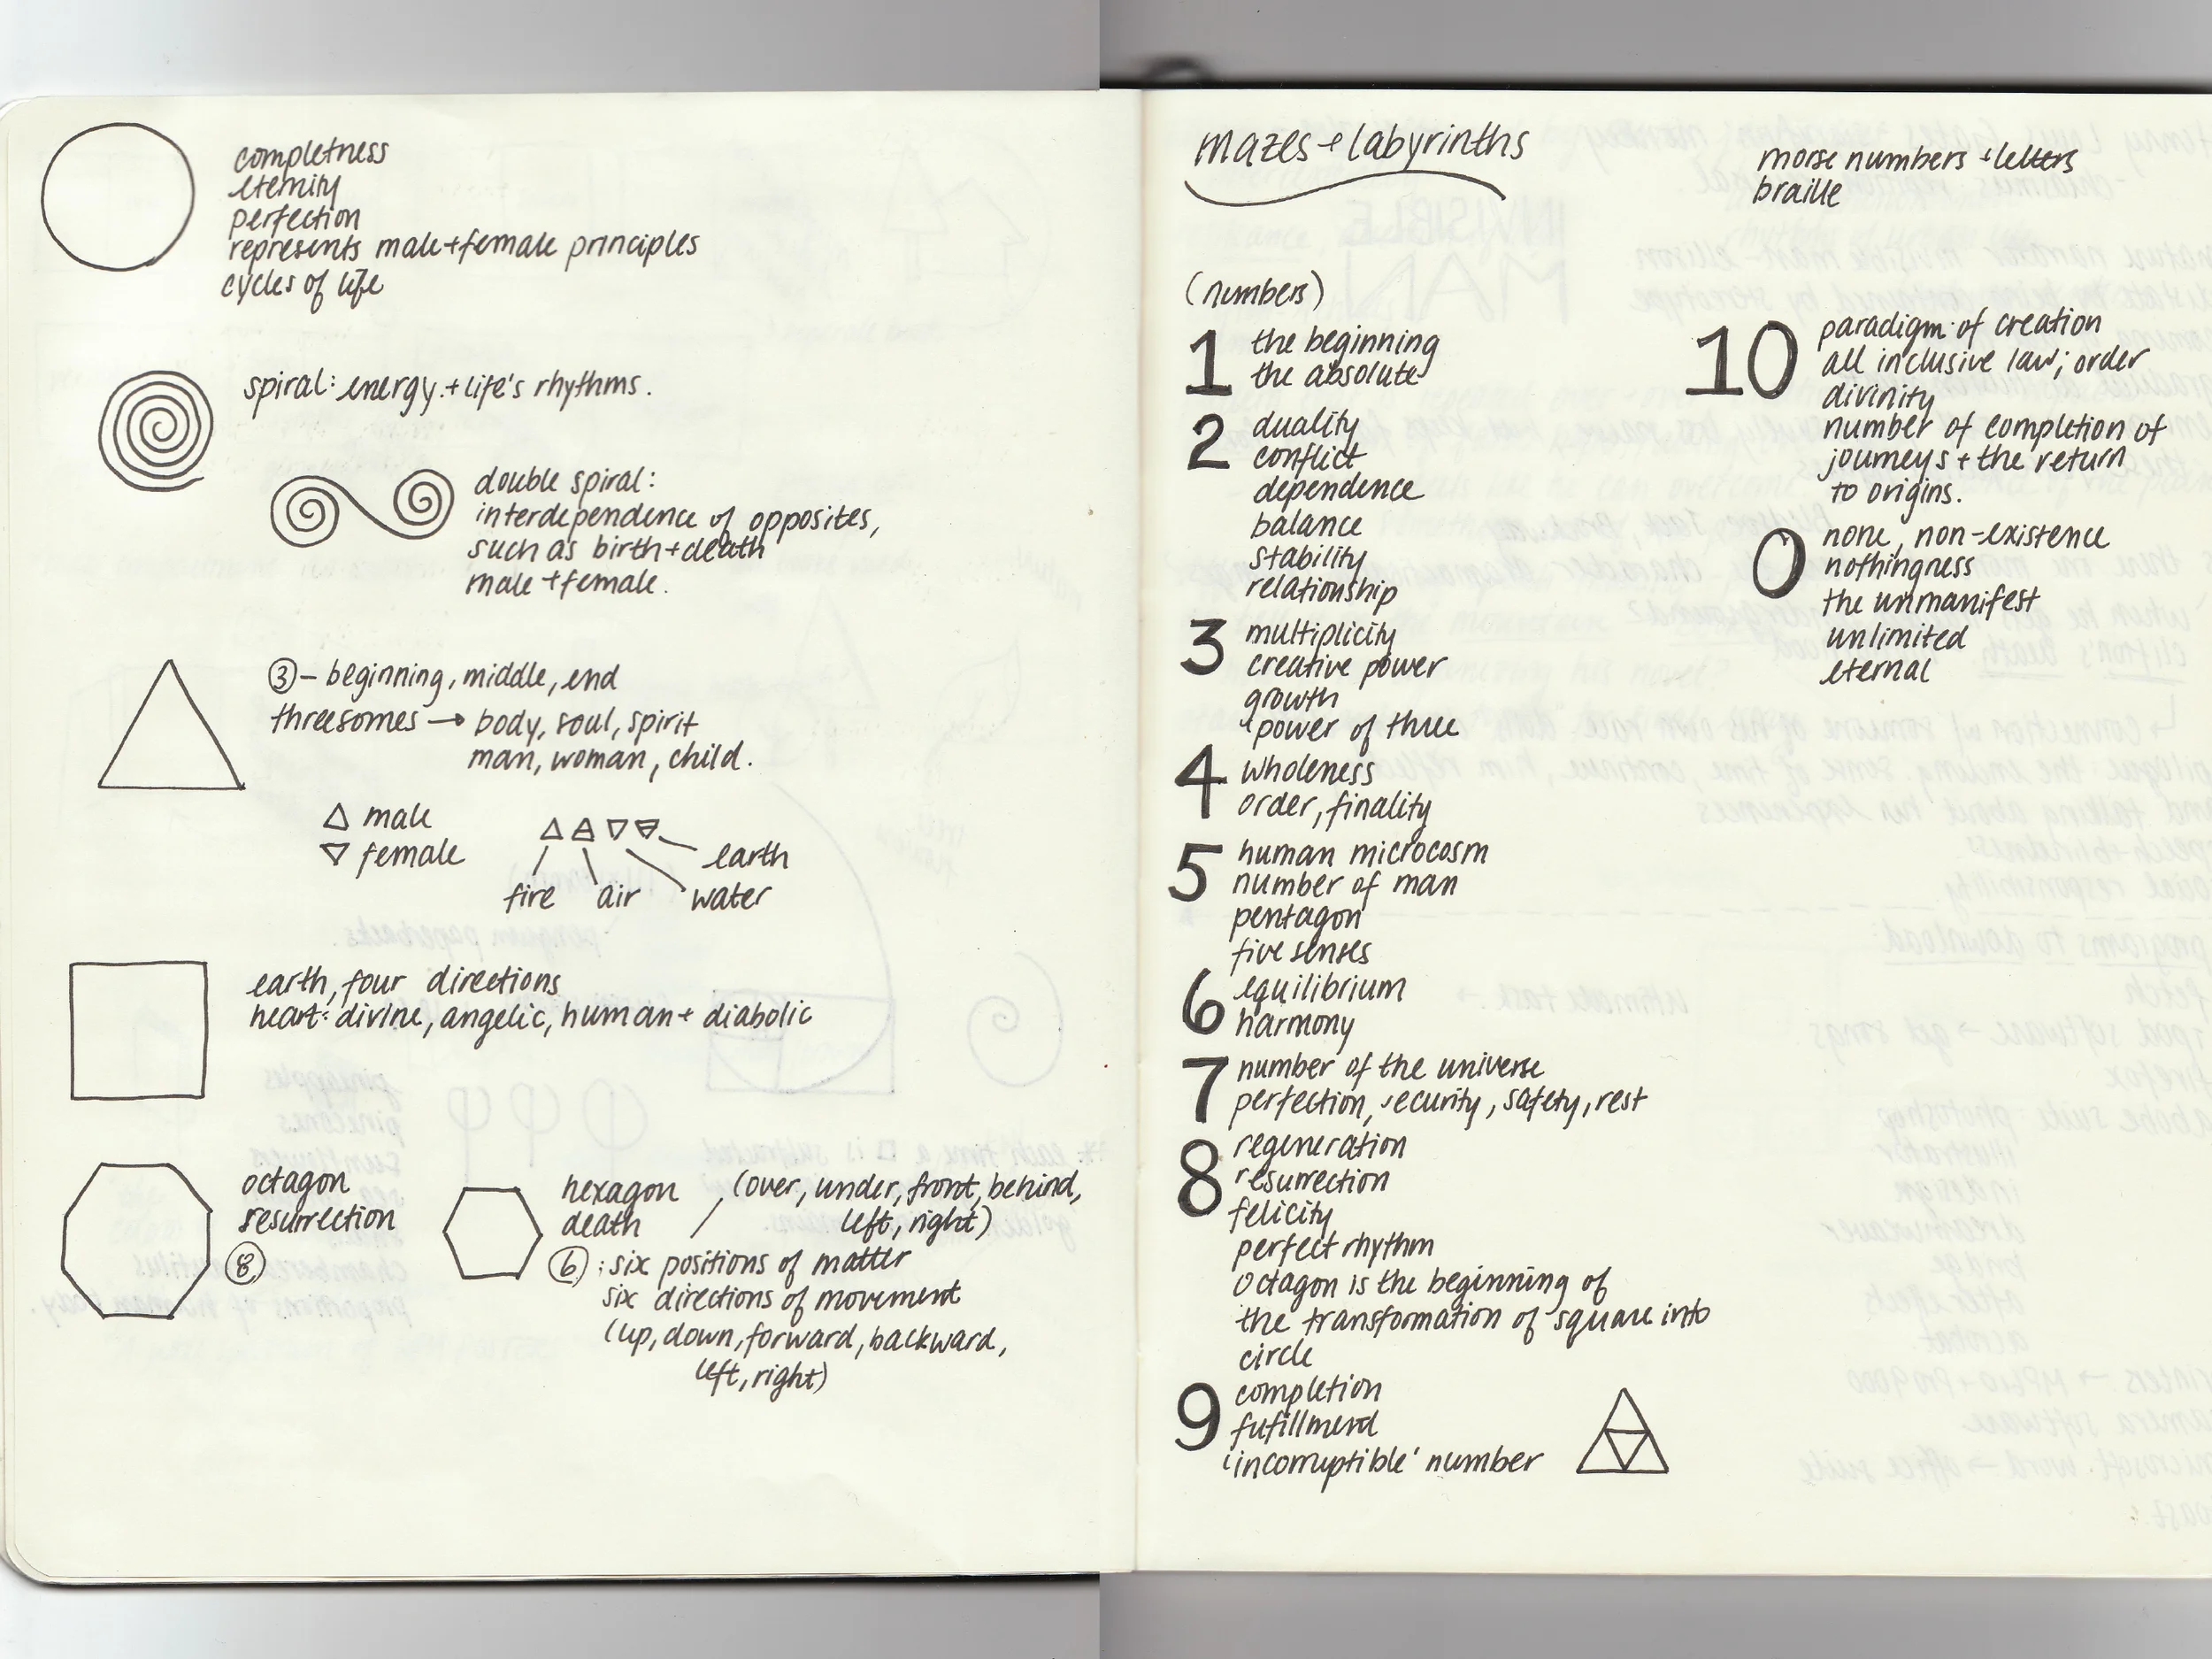 completness
eternity
perfection
represents male+female principles
cycles of life
spiral: energy + life's rhythms.
double spiral:
interdependence of opposites,
such as birth+death
male +female.
③ – beginning, middle, end
threesomes → body, soul, spirit
man, woman, child.
△ male
▽ female
earth
fire air water
earth, four directions
heart: divine, angelic, human + diabolic
octagon
resurrection
⑧
hexagon (over, under, front, behind,
death left, right)
⑥ : six positions of matter
six directions of movement
(up, down, forward, backward,
left, right)
mazes + labyrinths
morse numbers + letters
braille
(numbers)
1 the beginning
the absolute
2 duality
conflict
dependence
balance
stability
relationship
3 multiplicity
creative power
growth
'power of three
4 wholeness
order, finality
5 human microcosm
number of man
pentagon
five senses
6 equilibrium
harmony
7 number of the universe
perfection, security, safety, rest
8 regeneration
resurrection
felicity
perfect rhythm
octagon is the beginning of
the transformation of square into
circle
9 completion
fufillment
'incorruptible' number
10 paradigm of creation
all inclusive law; order
divinity
number of completion of
journeys + the return
to origins.
0 none, non-existence
nothingness
the unmanifest
unlimited
eternal